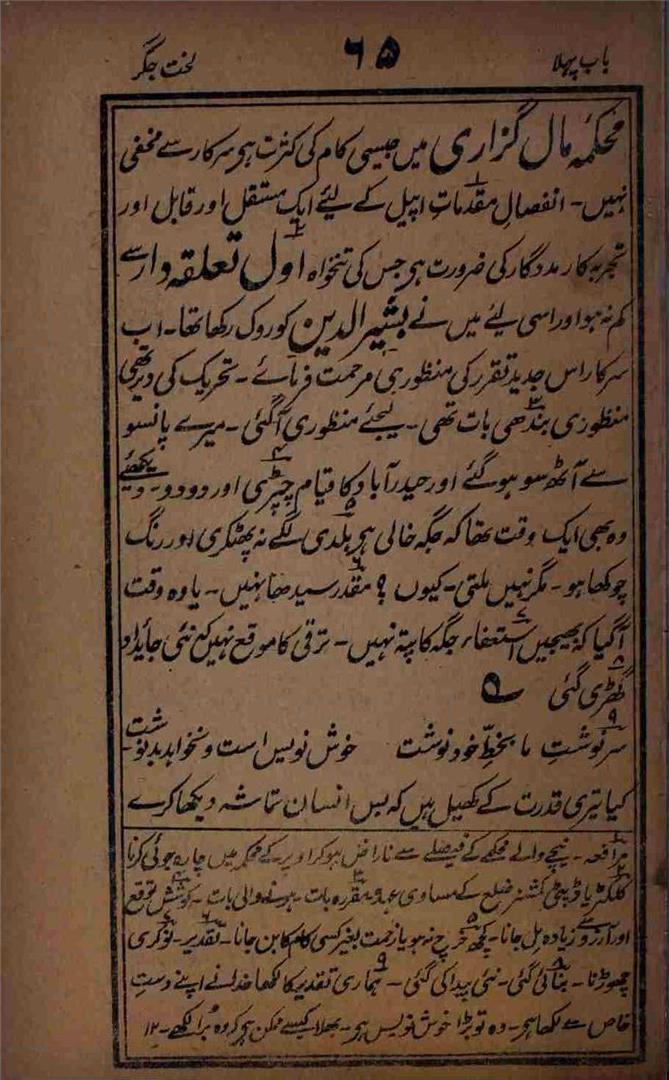 باب پہلا ۶۵ لخت جگر
محکمۂ مال گزاری میں جیسی کام کی کثرت ہی سرکار سے مخفی
نہیں۔ انفصالِ مقدماتِ اپیل کے لیئے ایک مستقل اور قابل اور
تجربہ کار مددگار کی ضرورت ہی جس کی تنخواہ اول تعلقہ دار سے
کم نہ ہو اور اسی لیئے میں نے بشیر الدین کو روک رکھا تھا۔ اب
سرکار اس جدید تقرر کی منظوری مرحمت فرمائے۔ تحریک کی دیر تھی
منظوری بندھی بات تھی۔ لیجئے منظوری آگئی۔ میرے پانسو
سے آٹھ سو ہو گئے اور حیدرآباد کا قیام چپڑی اور دو دو۔ دیکھئے
وہ بھی ایک وقت تھا کہ جگہ خالی ہی ہلدی لگے نہ پھٹکری اور رنگ
چوکھا ہو۔ مگر نہیں ملتی۔ کیوں ؟ مقدر سیدھا نہیں۔ یا وہ وقت
آگیا کہ بھیجیں استعفاء جگہ کا پتہ نہیں۔ ترقی کا موقع نہیں کہ نئی جائیداد
گھڑی گئی ۵
سرنوشتِ ما بخطِّ خود نوشت خوش نویس است و نخواہد بد نوشت
کیا تیری قدرت کے کھیل ہیں کہ بس انسان تماشہ دیکھا کرے
۱ مرافعہ۔ نیچے والے محکمے کے فیصلے سے ناراض ہو کر اوپر کے محکمہ میں چارہ جوئی کرنا
۲ کلکٹر یا ڈپٹی کمشنر ضلع کے مساوی عہدہ ۳ مقررہ بات۔ ہونے والی بات۔ ۴ کوشش توقع
اور آرزو سے زیادہ مل جانا۔ ۵ کچھ خرچ نہ ہو یا زحمت بغیر کسی کام کا بن جانا۔ ۶ تقدیر۔ ۷ نوکری
چھوڑنا۔ ۸ بنائی گئی۔ نئی پیدا کی گئی۔ ۹ ہماری تقدیر کا لکھا خدا نے اپنے دستِ
خاص سے لکھا ہی۔ وہ تو بڑا خوش نویس ہی۔ بھلا کیسے ممکن ہی کہ وہ بُرا لکھے۔ ۱۲